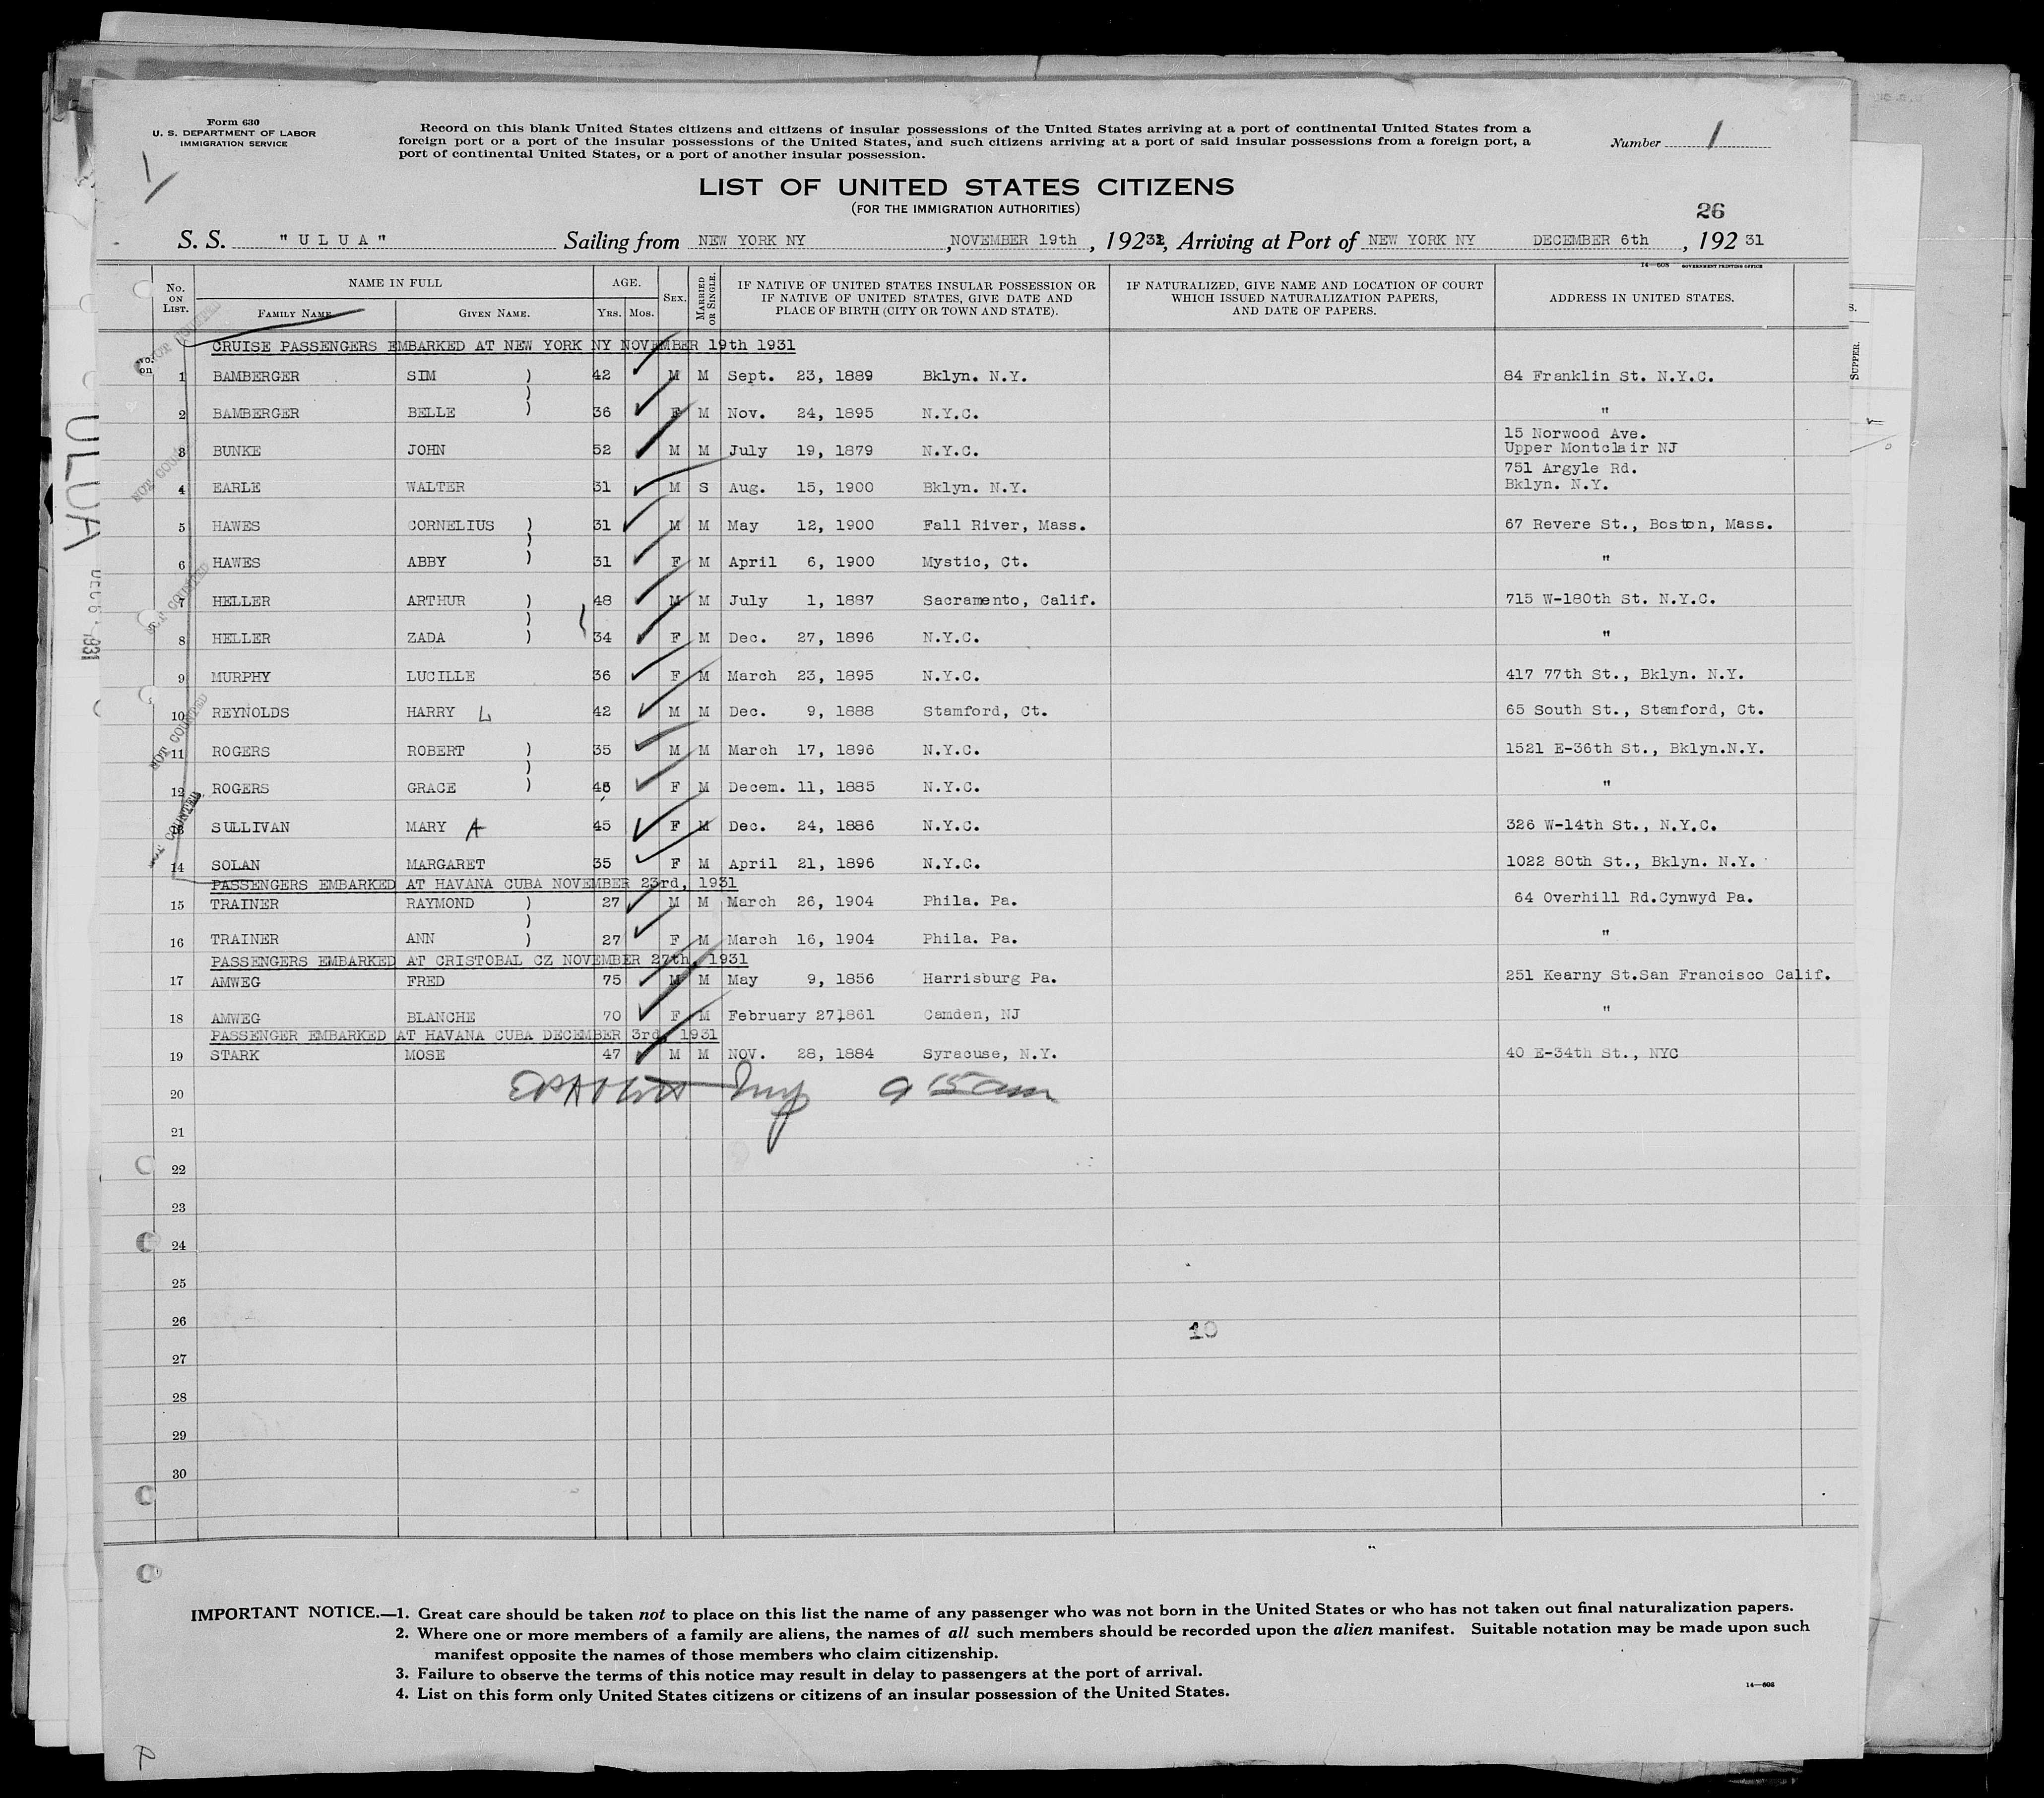 Form 630
U. S. DEPARTMENT OF LABOR
IMMIGRATION SERVICE
1
Record on this blank United States citizens and citizens of insular possessions of the United States arriving at a port of continental United States from a
foreign port or a port of the insular possessions of the United States, and such citizens arriving at a port of said insular possessions from a foreign port, a
port of continental United States, or a port of another insular possession.
Number 1
LIST OF UNITED STATES CITIZENS
(FOR THE IMMIGRATION AUTHORITIES)
26
S. S. "ULUA" Sailing from NEW YORK NY, NOVEMBER 19th, 192 31, Arriving at Port of NEW YORK NY DECEMBER 6th, 192 31
14—608 GOVERNMENT PRINTING OFFICE
No. on List. NAME IN FULL AGE. Sex. Married or Single. IF NATIVE OF UNITED STATES INSULAR POSSESSION OR IF NATIVE OF UNITED STATES, GIVE DATE AND PLACE OF BIRTH (CITY OR TOWN AND STATE). IF NATURALIZED, GIVE NAME AND LOCATION OF COURT WHICH ISSUED NATURALIZATION PAPERS, AND DATE OF PAPERS. ADDRESS IN UNITED STATES.
Family Name Given Name. Yrs. Mos.
CRUISE PASSENGERS EMBARKED AT NEW YORK NY NOVEMBER 19th 1931
No. on
1 BAMBERGER SIM ) 42 M M Sept. 23, 1889 Bklyn. N.Y. 84 Franklin St. N.Y.C.
2 BAMBERGER BELLE ) 36 F M Nov. 24, 1895 N.Y.C. "
3 BUNKE JOHN 52 M M July 19, 1879 N.Y.C. 15 Norwood Ave. Upper Montclair NJ
4 EARLE WALTER 31 M S Aug. 15, 1900 Bklyn. N.Y. 751 Argyle Rd. Bklyn. N.Y.
5 HAWES CORNELIUS ) 31 M M May 12, 1900 Fall River, Mass. 67 Revere St., Boston, Mass.
6 HAWES ABBY ) 31 F M April 6, 1900 Mystic, Ct. "
7 HELLER ARTHUR ) 48 M M July 1, 1887 Sacramento, Calif. 715 W-180th St. N.Y.C.
8 HELLER ZADA ) 34 F M Dec. 27, 1896 N.Y.C. "
9 MURPHY LUCILLE 36 F M March 23, 1895 N.Y.C. 417 77th St., Bklyn. N.Y.
10 REYNOLDS HARRY L 42 M M Dec. 9, 1888 Stamford, Ct. 65 South St., Stamford, Ct.
11 ROGERS ROBERT ) 35 M M March 17, 1896 N.Y.C. 1521 E-36th St., Bklyn.N.Y.
12 ROGERS GRACE ) 45 F M Decem. 11, 1885 N.Y.C. "
13 SULLIVAN MARY A 45 F M Dec. 24, 1886 N.Y.C. 326 W-14th St., N.Y.C.
14 SOLAN MARGARET 35 F M April 21, 1896 N.Y.C. 1022 80th St., Bklyn. N.Y.
PASSENGERS EMBARKED AT HAVANA CUBA NOVEMBER 23rd, 1931
15 TRAINER RAYMOND ) 27 M M March 26, 1904 Phila. Pa. 64 Overhill Rd.Cynwyd Pa.
16 TRAINER ANN ) 27 F M March 16, 1904 Phila. Pa. "
PASSENGERS EMBARKED AT CRISTOBAL CZ NOVEMBER 27th, 1931
17 AMWEG FRED 75 M M May 9, 1856 Harrisburg Pa. 251 Kearny St.San Francisco Calif.
18 AMWEG BLANCHE 70 F M February 27,1861 Camden, NJ "
PASSENGER EMBARKED AT HAVANA CUBA DECEMBER 3rd, 1931
19 STARK MOSE 47 M M NOV. 28, 1884 Syracuse, N.Y. 40 E-34th St., NYC
20 9 15 am
21
22
23
24
25
26
10
27
28
29
30
NOT COUNTED
NOT COUNTED
NOT COUNTED
NOT COUNTED
NOT COUNTED
ULUA
DEC 6 1931
SUPPER.
IMPORTANT NOTICE.—1. Great care should be taken not to place on this list the name of any passenger who was not born in the United States or who has not taken out final naturalization papers.
2. Where one or more members of a family are aliens, the names of all such members should be recorded upon the alien manifest. Suitable notation may be made upon such
manifest opposite the names of those members who claim citizenship.
3. Failure to observe the terms of this notice may result in delay to passengers at the port of arrival.
4. List on this form only United States citizens or citizens of an insular possession of the United States.
14—608
P